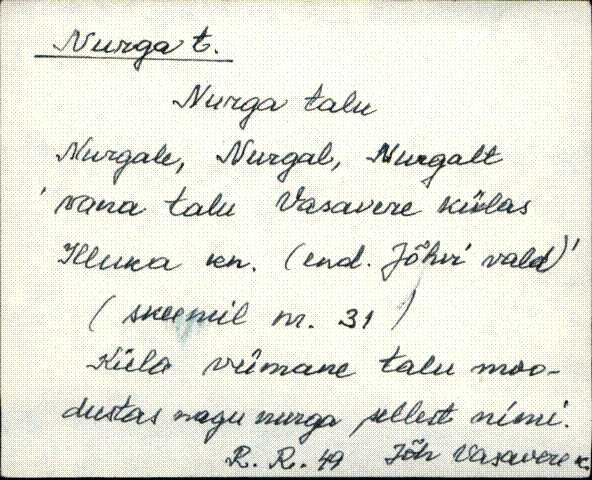 Nurga t.
Nurga talu
Nurgale, Nurgal, Nurgalt
'vana talu Vasavere külas
Illuka kn. (end. Jõhvi vald)'
(skeemil nr. 31)
Küla viimane talu moo-
dustas nagu nurga sellest nimi.
R. R. 49 Jõh Vasavere k.